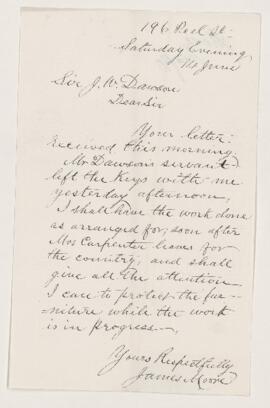 196 Peel St.
Saturday Evening
14 June
Sir J. W. Dawson
Dear Sir
Your letter
received this morning.
Mr Dawson's servant
left the Keys with me
yesterday afternoon,
I shall have the work done
as arranged for, soon after
Mrs Carpenter leaves for
the country, and shall
give all the attention
I can to protect the fur-
-niture while the work
is in progress.
Yours Respectfully
James Moore